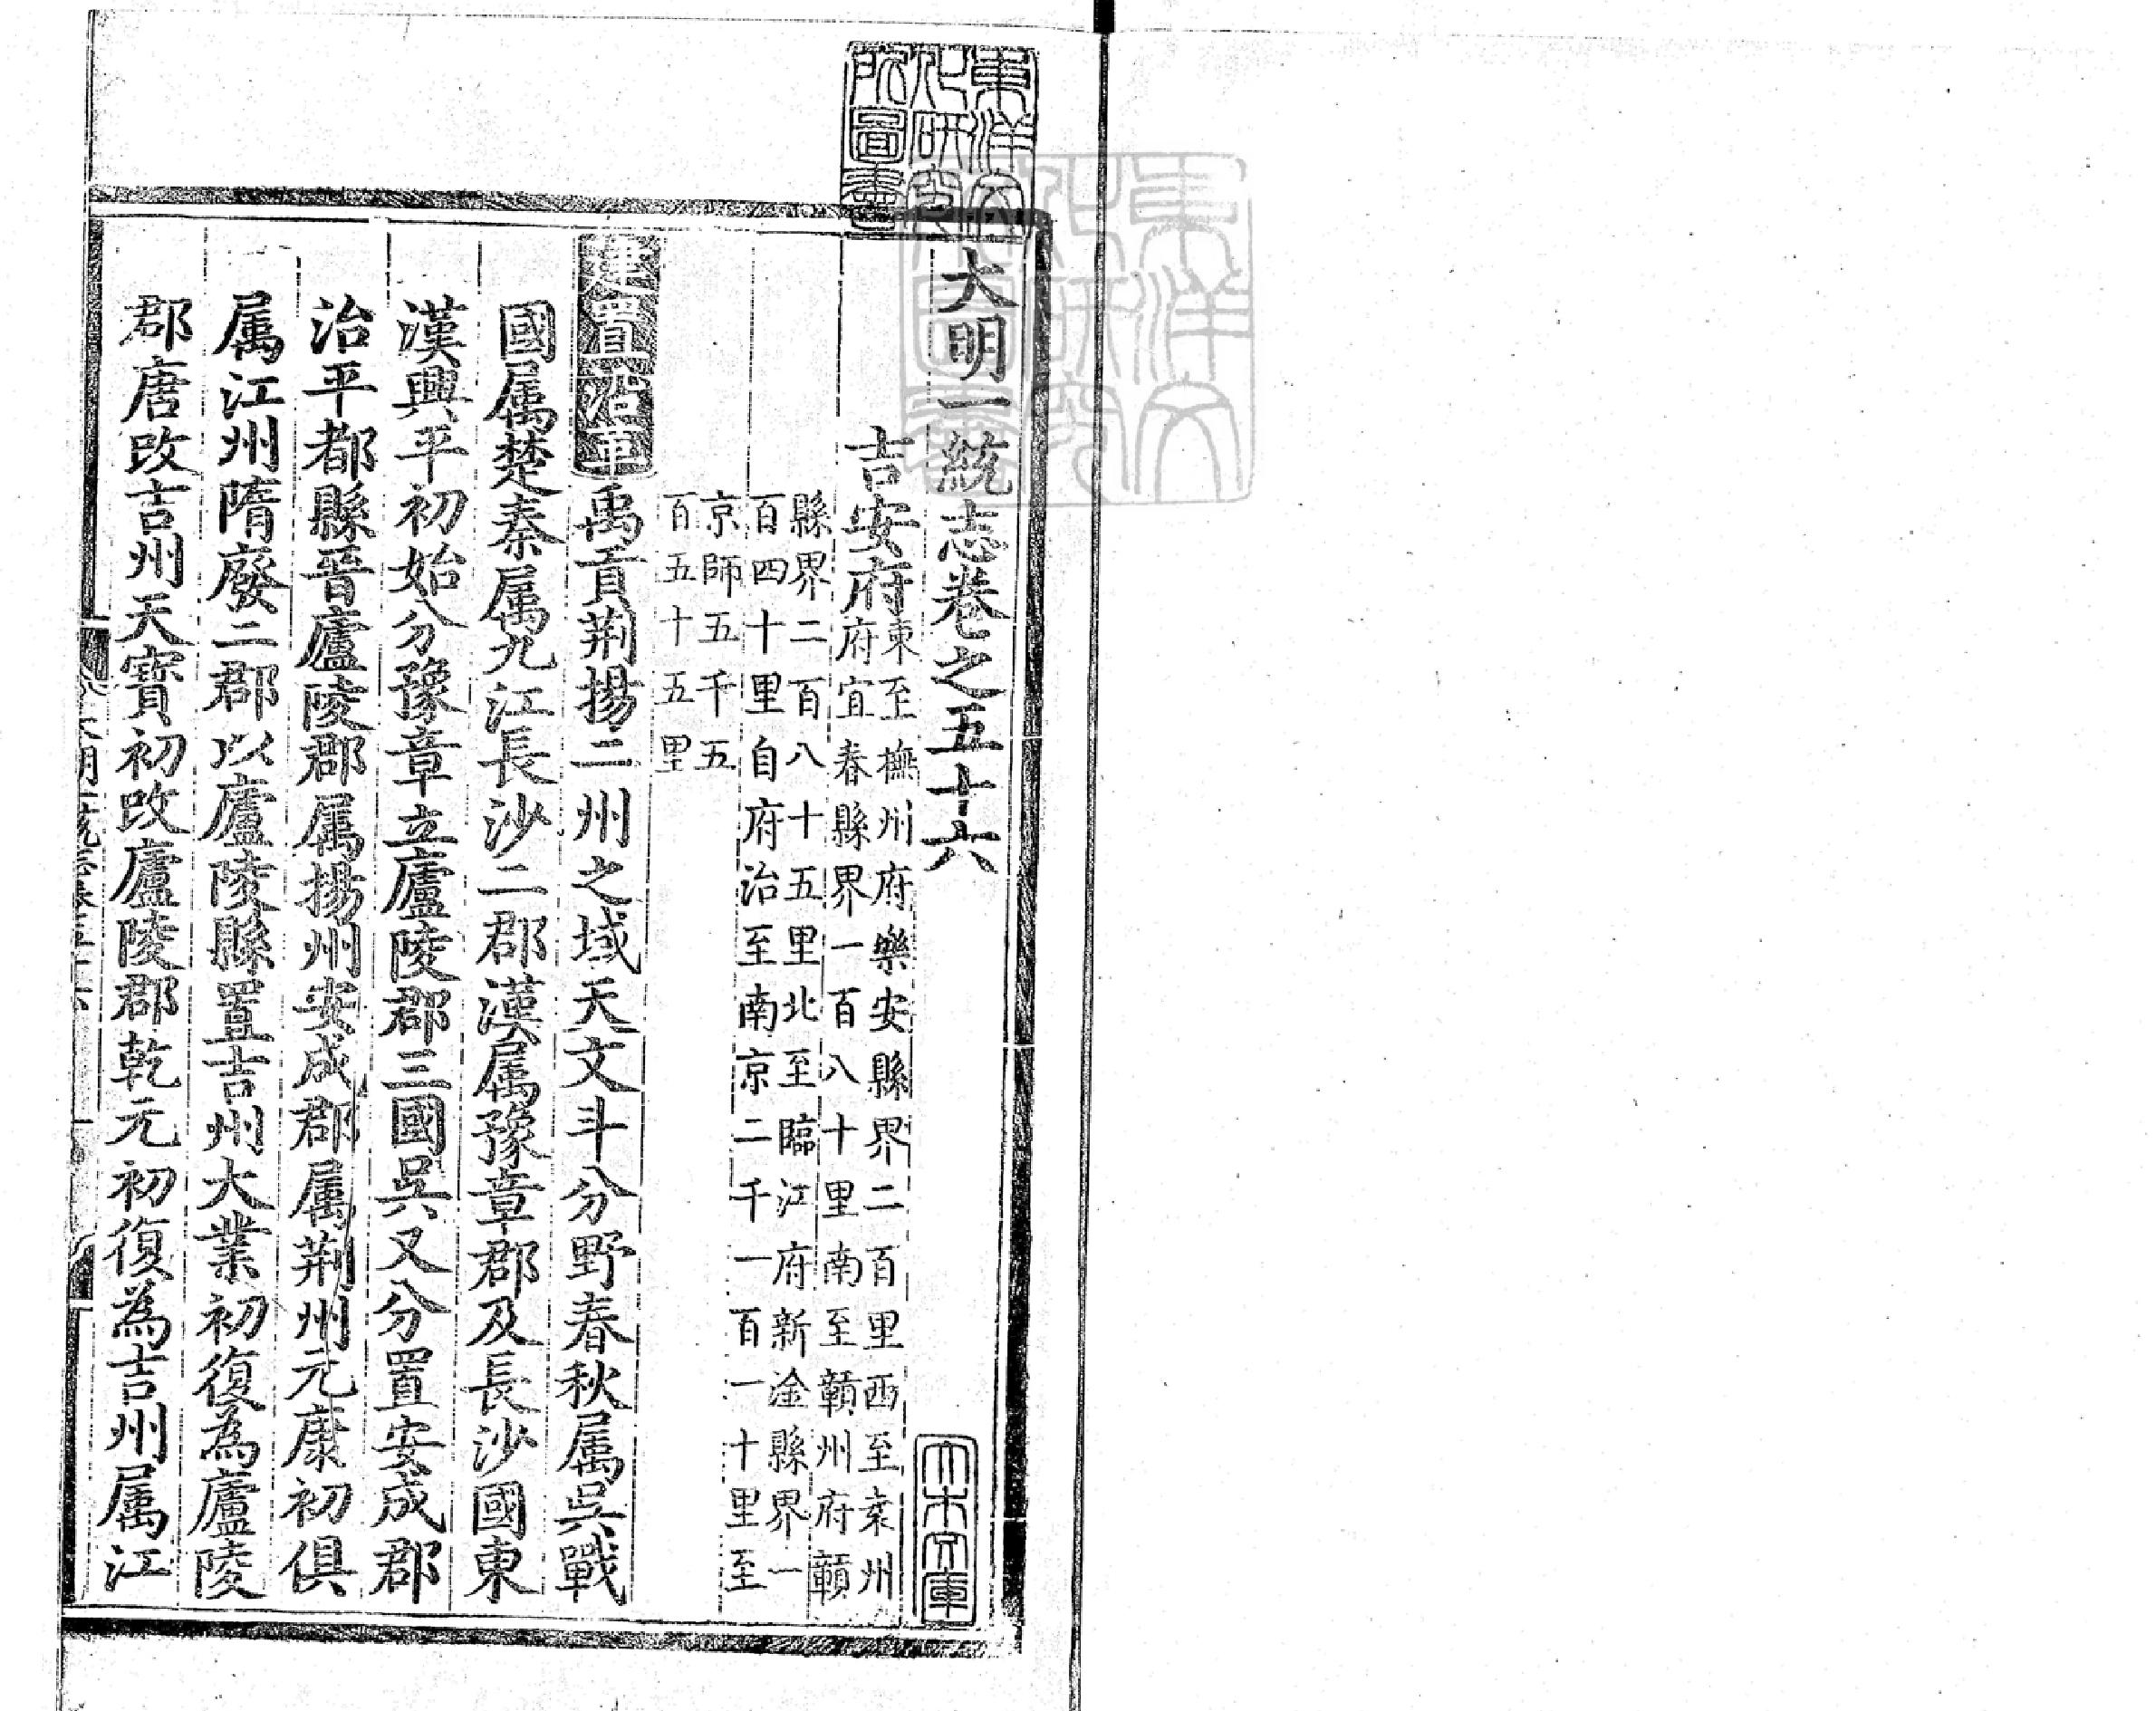 東洋文化研究所圖書
大明一統志卷之五十六
大木文庫
吉安府府東至撫州府樂安縣界二百里西至袁州
府宜春縣界一百八十里南至贛州府贛
縣界二百八十五里北至臨江府新淦縣界一
百四十里自府治至南京二千一百一十里至
京師五千五
百五十五里
建置沿革禹貢荆揚二州之域天文斗分野春秋属吳戰
國属楚秦属九江長沙二郡漢属豫章郡及長沙國東
漢興平初始分豫章立廬陵郡三國吳又分置安成郡
治平都縣晉廬陵郡属揚州安成郡属荆州元康初俱
属江州隋廢二郡以廬陵縣置吉州大業初復為廬陵
郡唐改吉州天寶初改廬陵郡乾元初復為吉州属江